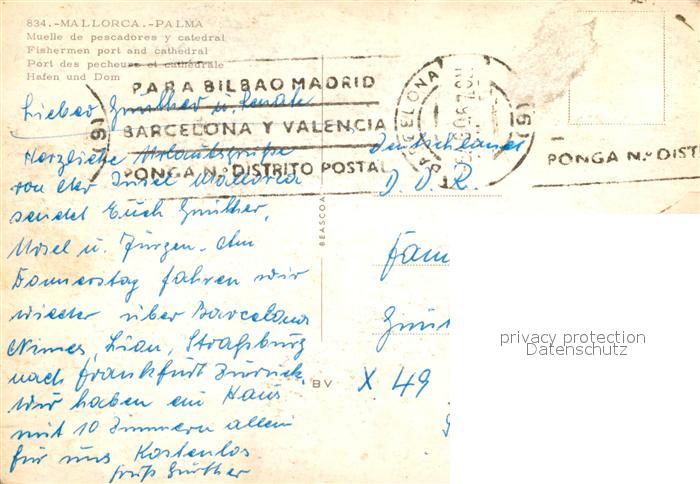 834.-MALLORCA.-PALMA
Muelle de pescadores y catedral
Fishermen port and cathedral
Port des pecheurs et cathédrale
Hafen und Dom
PARA BILBAO MADRID
BARCELONA Y VALENCIA
PONGA N.º DISTRITO POSTAL
(9)
BARCELONA
(9)
PONGA N.º DISTR
Lieber Günther u. Renate
Herzliche Urlaubsgrüße
von der Insel Mallorca
sendet Euch Günther,
Ursel u. Jürgen. Am
Donnerstag fahren wir
wieder über Barcelona
Nimes, Lion, Straßburg
nach Frankfurt zurück.
Wir haben ein Haus
mit 10 Zimmern allein
für uns kostenlos
Gruß Günther
BEASCOA
BV
Deutschland
D. D. R.
Fam
Günt
X 49
privacy protection
Datenschutz